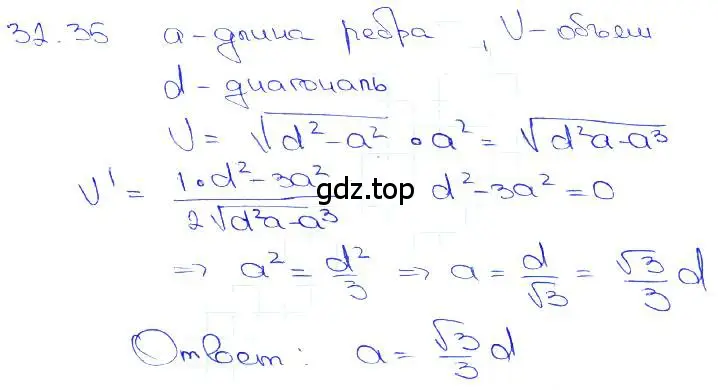 32.35 a - длина ребра, V - объем
d - диагональ
V = √(d² - a²) • a² = √(d²a - a³)
V' = (1 • d² - 3a²)/(2√(d²a - a³)) d² - 3a² = 0
gdz.top
⇒ a² = d²/3 ⇒ a = d/√3 = √3/3 d
Ответ: a = √3/3 d